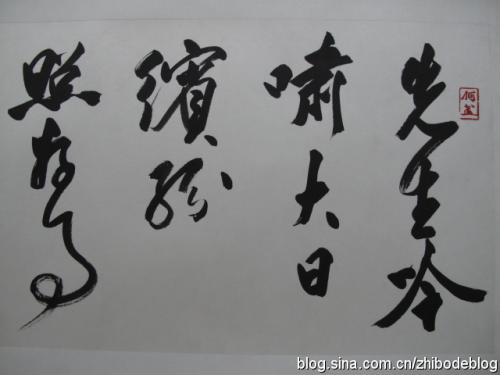 先生吟
嘯大日
繽紛
照
blog.sina.com.cn/zhibodeblog